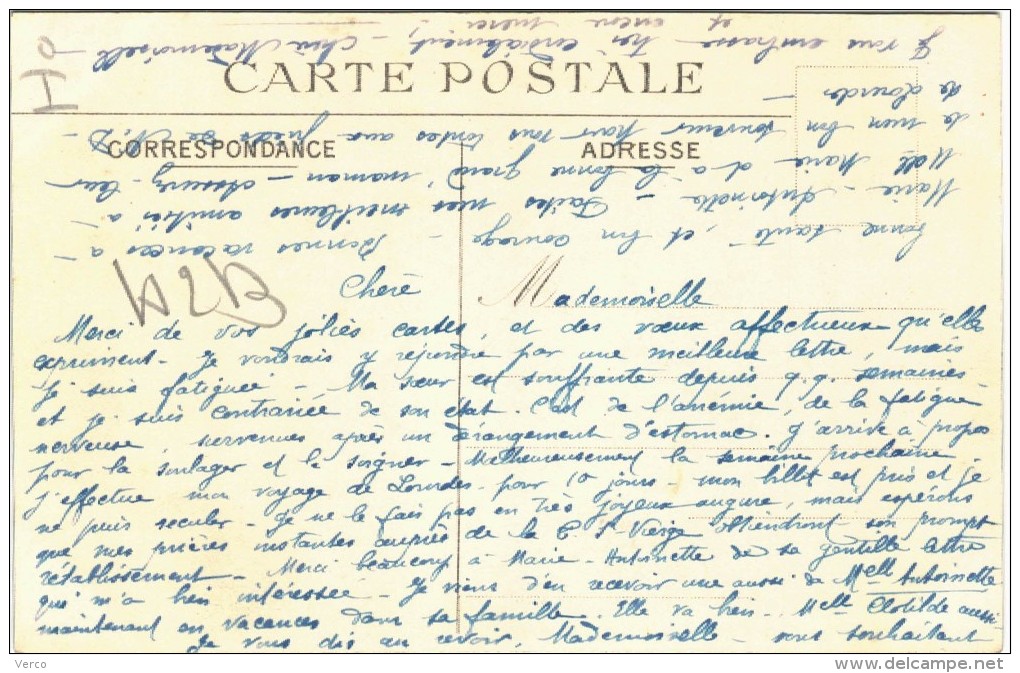 CARTE POSTALE
CORRESPONDANCE
ADRESSE
H2B
Chère Mademoiselle
Merci de vos jolies cartes et des vœux affectueux qu'elles
expriment - Je voudrais y répondre par une meilleure lettre, mais
je suis fatiguée - Ma sœur est souffrante depuis q.q. semaines -
et je suis contrariée de son état. C'est de l'anémie, de la fatigue
nerveuse, survenues après un dérangement d'estomac. J'arrive à propos
pour la soulager et la soigner - Malheureusement la semaine prochaine
j'effectue mon voyage de Lourdes - pour 10 jours - mon billet est pris et je
ne puis reculer - Je ne le fais pas en très joyeux augure, mais espérons
que mes prières instantes auprès de la T. Ste Vierge obtiendront son prompt
rétablissement - Merci beaucoup à Marie-Antoinette de sa gentille lettre
qui m'a bien intéressée - Je viens d'en recevoir une aussi de Melle Antoinette
maintenant en vacances dans sa famille. Elle va bien - Melle Clotilde aussi -
Je vous dis au revoir, Mademoiselle - vous souhaitant
bonne santé, et bon courage - Bonnes vacances à
Marie-Antoinette - Faites mes meilleures amitiés à
Melle Marie et à la bonne grand'maman - Assurez-leur
de mon bon souvenir pour vous toutes aux pieds de N.D
de Lourdes -
Je vous embrasse très cordialement, - Chère Mademoiselle
et encore merci
Verco
www.delcampe.net